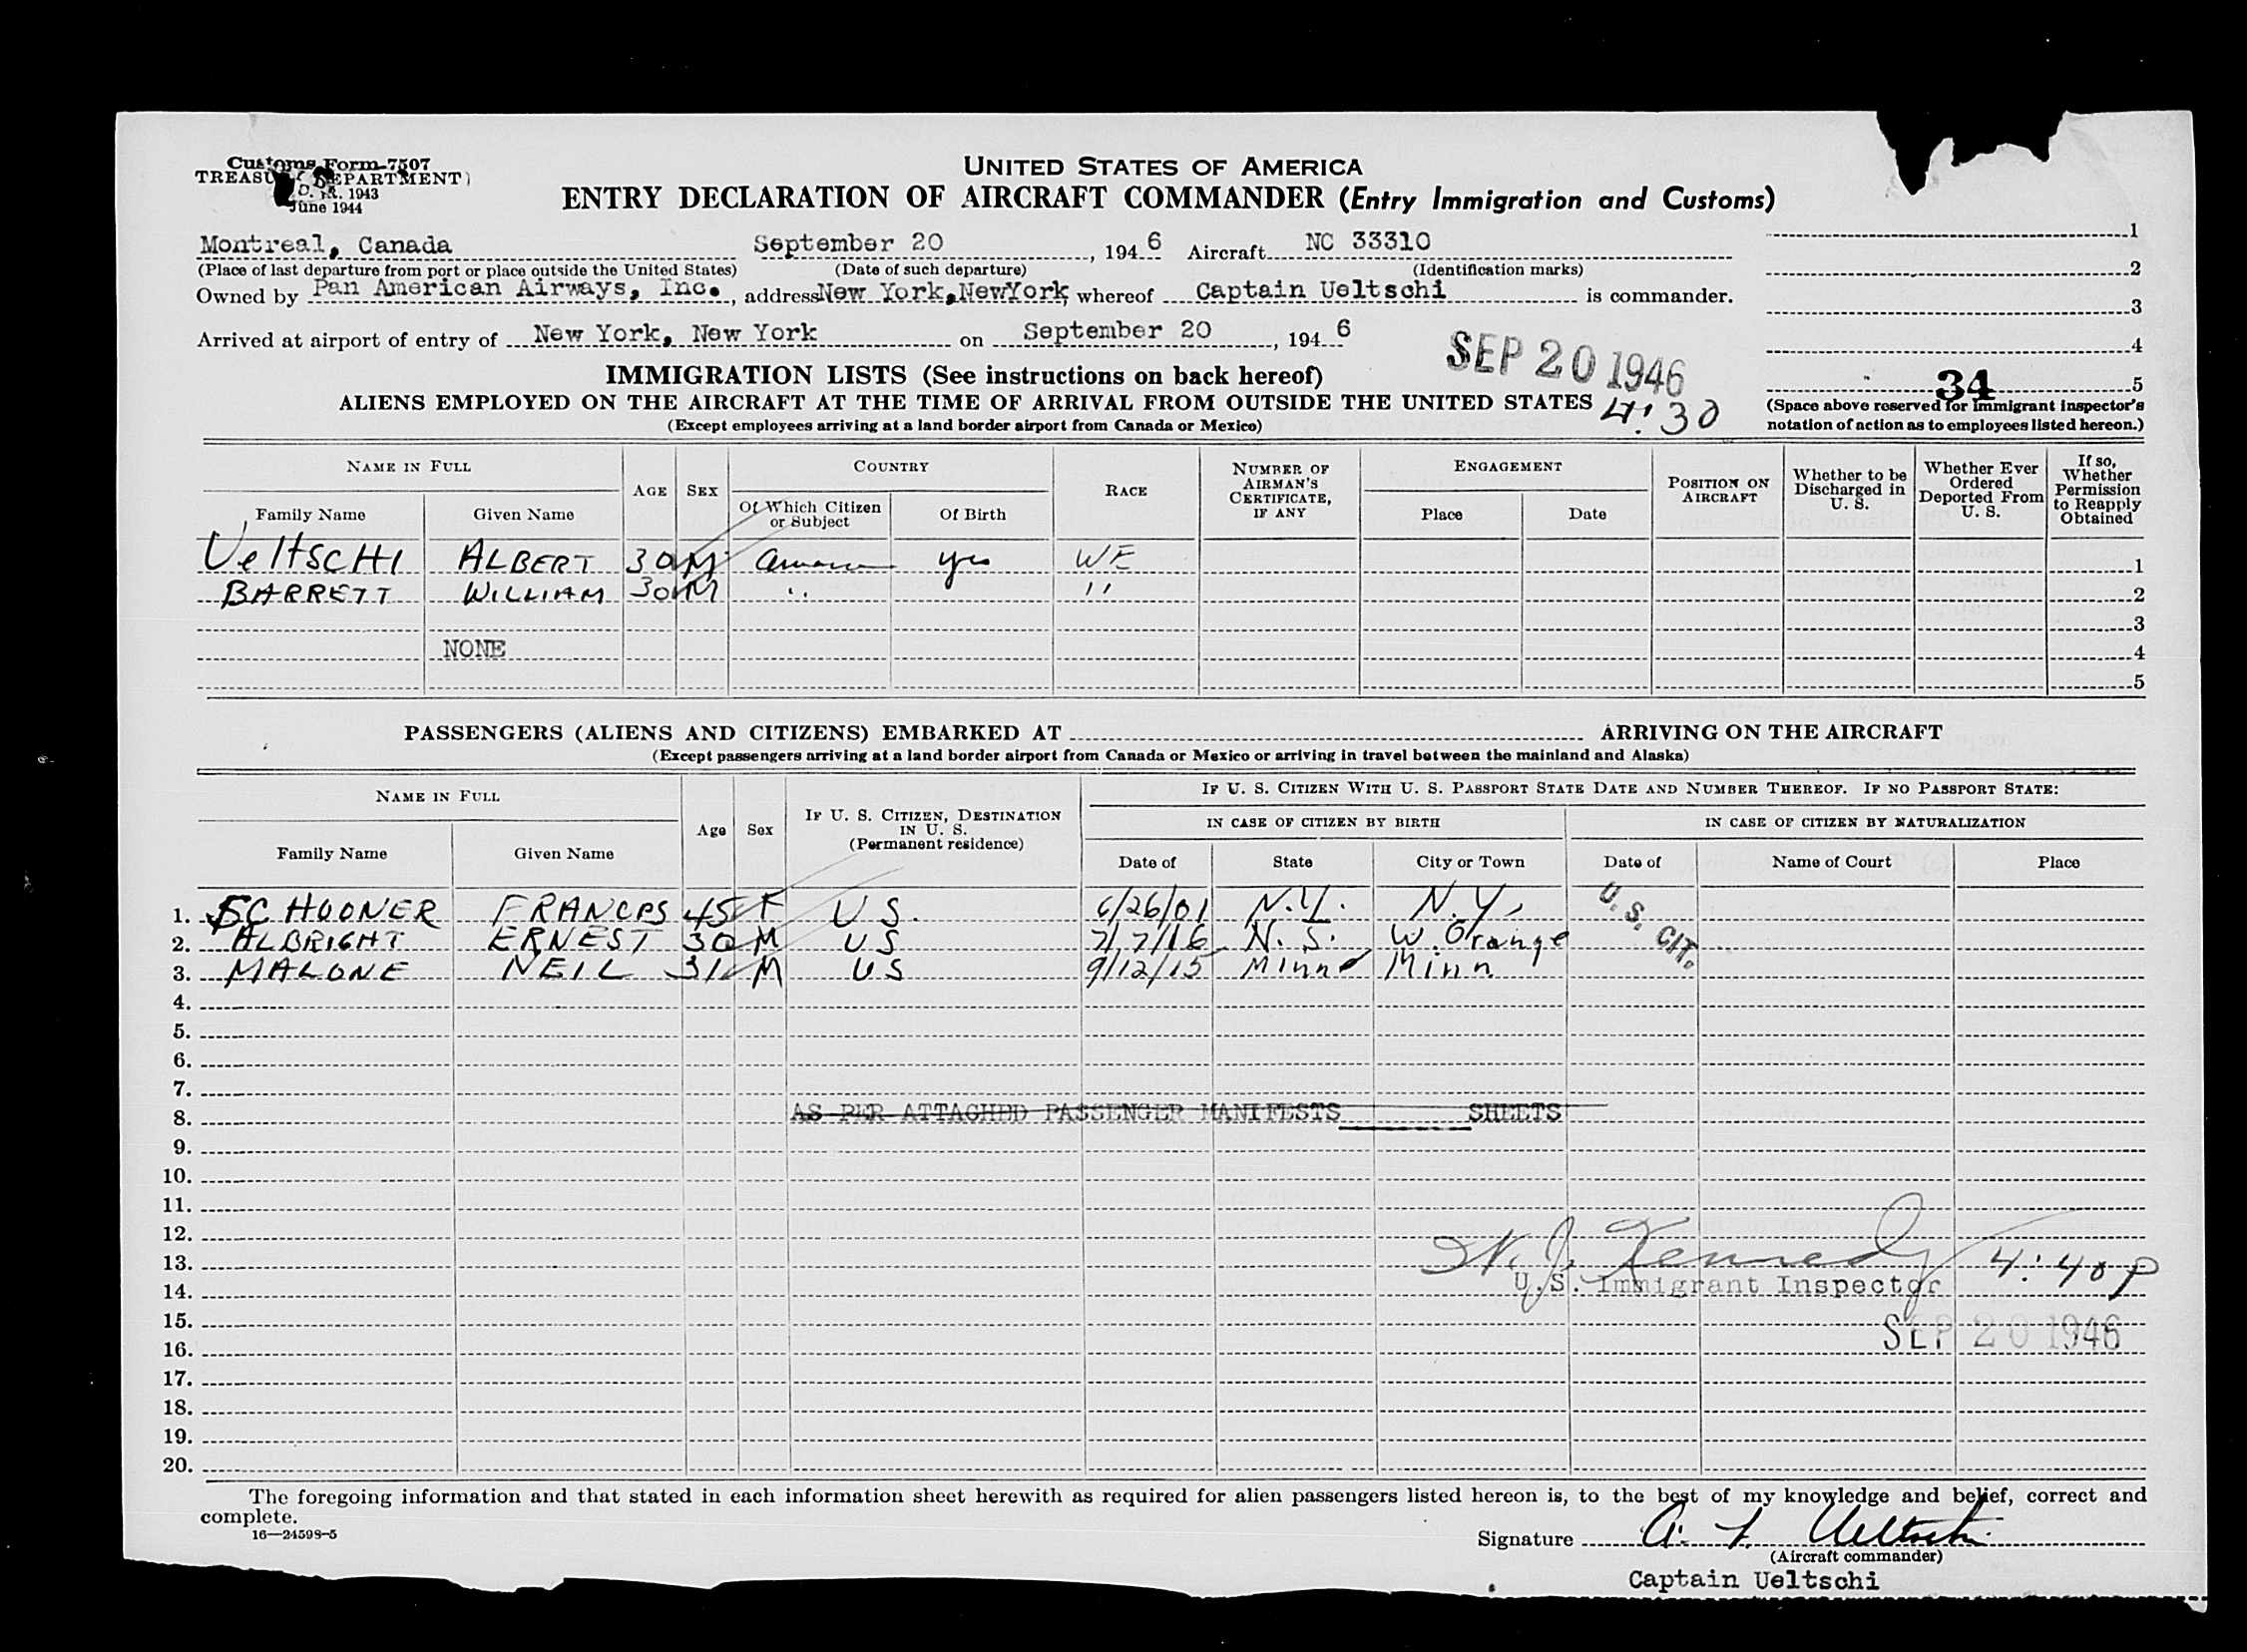 Customs Form 7507
TREASURY DEPARTMENT
1943
June 1944
UNITED STATES OF AMERICA
ENTRY DECLARATION OF AIRCRAFT COMMANDER (Entry Immigration and Customs)
Montreal, Canada September 20, 1946 Aircraft NC 33310 1
(Place of last departure from port or place outside the United States) (Date of such departure) (Identification marks) 2
Owned by Pan American Airways, Inc., address New York, NewYork, whereof Captain Ueltschi is commander. 3
Arrived at airport of entry of New York, New York on September 20, 1946 4
SEP 20 1946
IMMIGRATION LISTS (See instructions on back hereof) 34 5
ALIENS EMPLOYED ON THE AIRCRAFT AT THE TIME OF ARRIVAL FROM OUTSIDE THE UNITED STATES 4:30
(Space above reserved for immigrant inspector's notation of action as to employees listed hereon.)
(Except employees arriving at a land border airport from Canada or Mexico)
NAME IN FULL AGE SEX COUNTRY RACE NUMBER OF AIRMAN'S CERTIFICATE, IF ANY ENGAGEMENT POSITION ON AIRCRAFT Whether to be Discharged in U. S. Whether Ever Ordered Deported From U. S. If so, Whether Permission to Reapply Obtained
Family Name Given Name Of Which Citizen or Subject Of Birth Place Date
UeltSCHI ALBERT 30 M yes WE 1
BARRETT WILLIAM 30 M " " 2
3
NONE 4
5
PASSENGERS (ALIENS AND CITIZENS) EMBARKED AT ARRIVING ON THE AIRCRAFT
(Except passengers arriving at a land border airport from Canada or Mexico or arriving in travel between the mainland and Alaska)
NAME IN FULL Age Sex IF U. S. CITIZEN, DESTINATION IN U. S. (Permanent residence) IF U. S. CITIZEN WITH U. S. PASSPORT STATE DATE AND NUMBER THEREOF. IF NO PASSPORT STATE:
IN CASE OF CITIZEN BY BIRTH IN CASE OF CITIZEN BY NATURALIZATION
Family Name Given Name Date of State City or Town Date of Name of Court Place
1. SCHOONER FRANCES 45 F U S. 6/26/01 N.Y. N.Y.
2. ALBRIGHT ERNEST 30 M U S 7/7/16 N. J. W. Orange
3. MALONE NEIL 31 M U S 9/12/15 Minn Minn
U. S. CIT.
4.
5.
6.
7.
8. AS PER ATTACHED PASSENGER MANIFESTS SHEETS
9.
10.
11.
12.
13. Kennedy 4:40 P
14. U. S. Immigrant Inspector
15. SEP 20 1946
16.
17.
18.
19.
20.
The foregoing information and that stated in each information sheet herewith as required for alien passengers listed hereon is, to the best of my knowledge and belief, correct and
complete.
16—24598-5
Signature A. L. Ueltschi
(Aircraft commander)
Captain Ueltschi